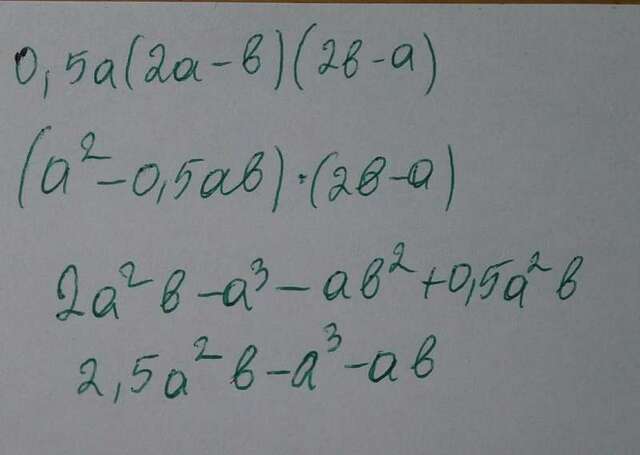 0,5a(2a-в)(2в-a)
(a²-0,5aв)·(2в-a)
2a²в-a³-aв²+0,5a²в
2,5a²в-a³-aв